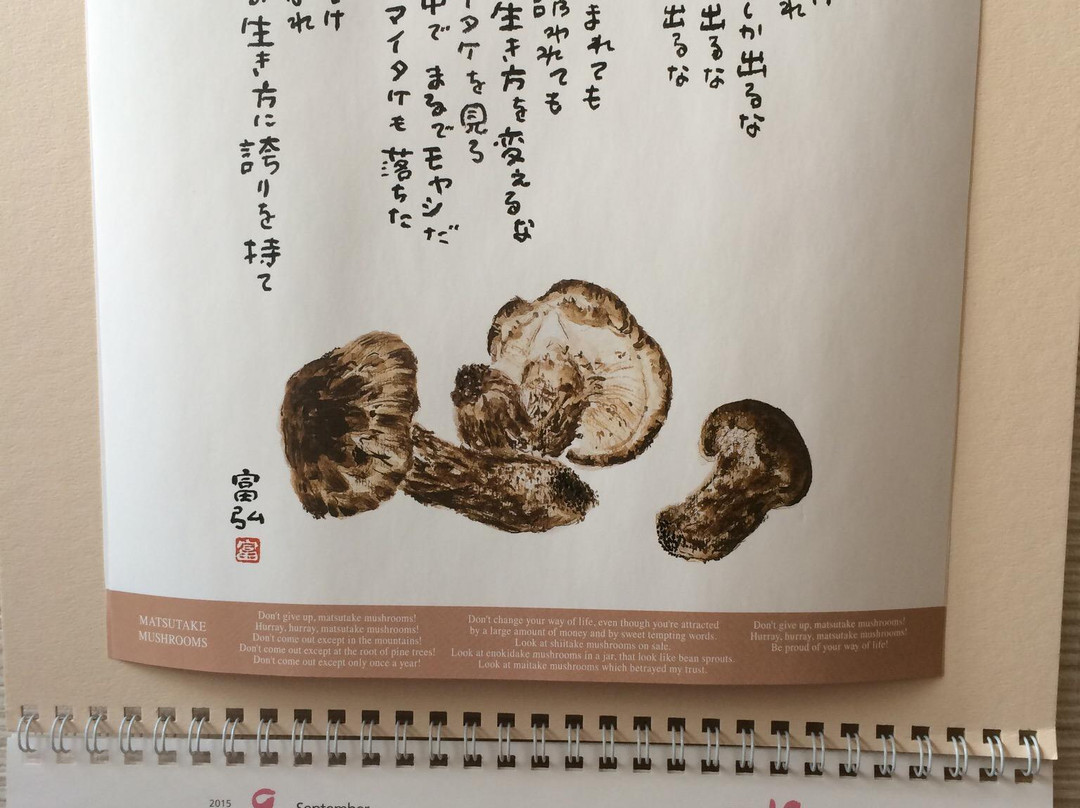 れ
しか出るな
出るな
出るな
まれても
われても
生き方を変えるな
イタケを見ろ
中で まるでモヤシだ
マイタケも落ちた
け
れ
生き方に誇りを持て
富弘
富
MATSUTAKE
MUSHROOMS
Don't give up, matsutake mushrooms!
Hurray, hurray, matsutake mushrooms!
Don't come out except in the mountains!
Don't come out except at the root of pine trees!
Don't come out except only once a year!
Don't change your way of life, even though you're attracted
by a large amount of money and by sweet tempting words.
Look at shiitake mushrooms on sale.
Look at enokidake mushrooms in a jar, that look like bean sprouts.
Look at maitake mushrooms which betrayed my trust.
Don't give up, matsutake mushrooms!
Hurray, hurray, matsutake mushrooms!
Be proud of your way of life!
2015 9 September